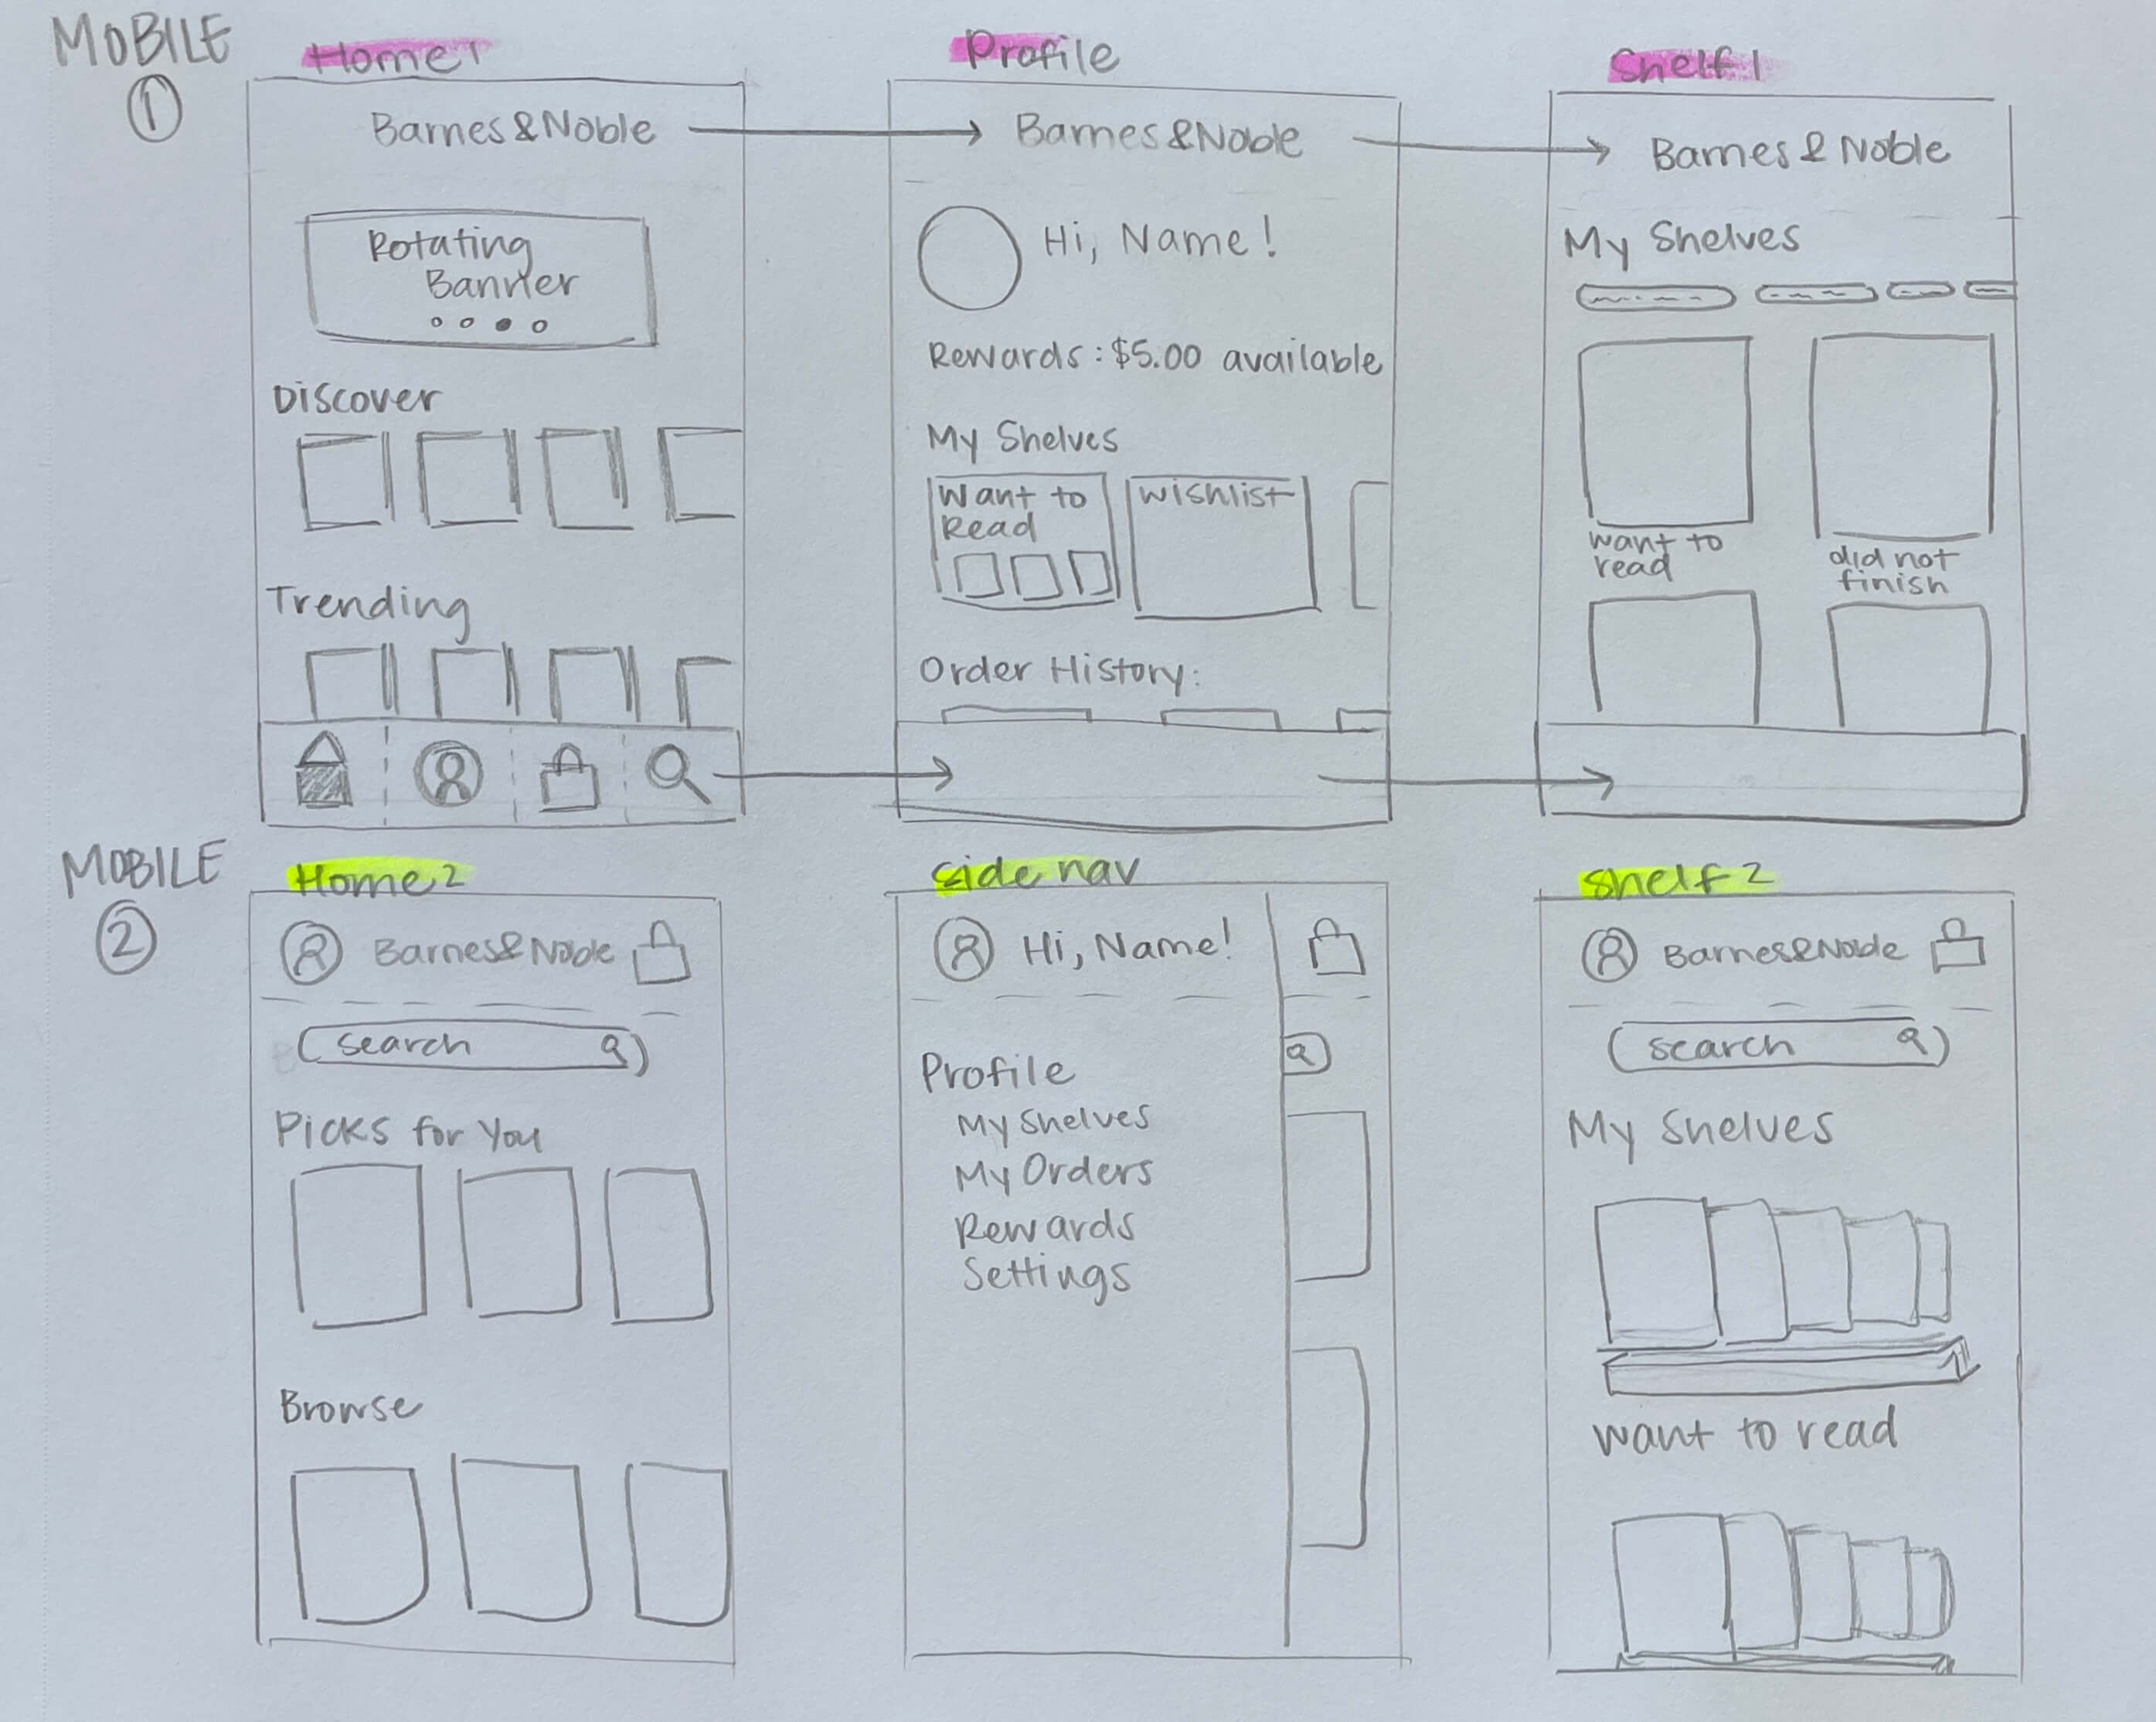 MOBILE
1
Home 1
Barnes&Noble
Rotating
Banner
Discover
Trending
Profile
Barnes&Noble
Hi, Name!
Rewards: $5.00 available
My Shelves
Want to
Read
Wishlist
Order History:
Shelf 1
Barnes & Noble
My Shelves
want to
read
did not
finish
MOBILE
2
Home 2
Barnes&Noble
search
Picks for You
Browse
side nav
Hi, Name!
Profile
My Shelves
My Orders
Rewards
Settings
Shelf 2
Barnes&Noble
search
My Shelves
want to read